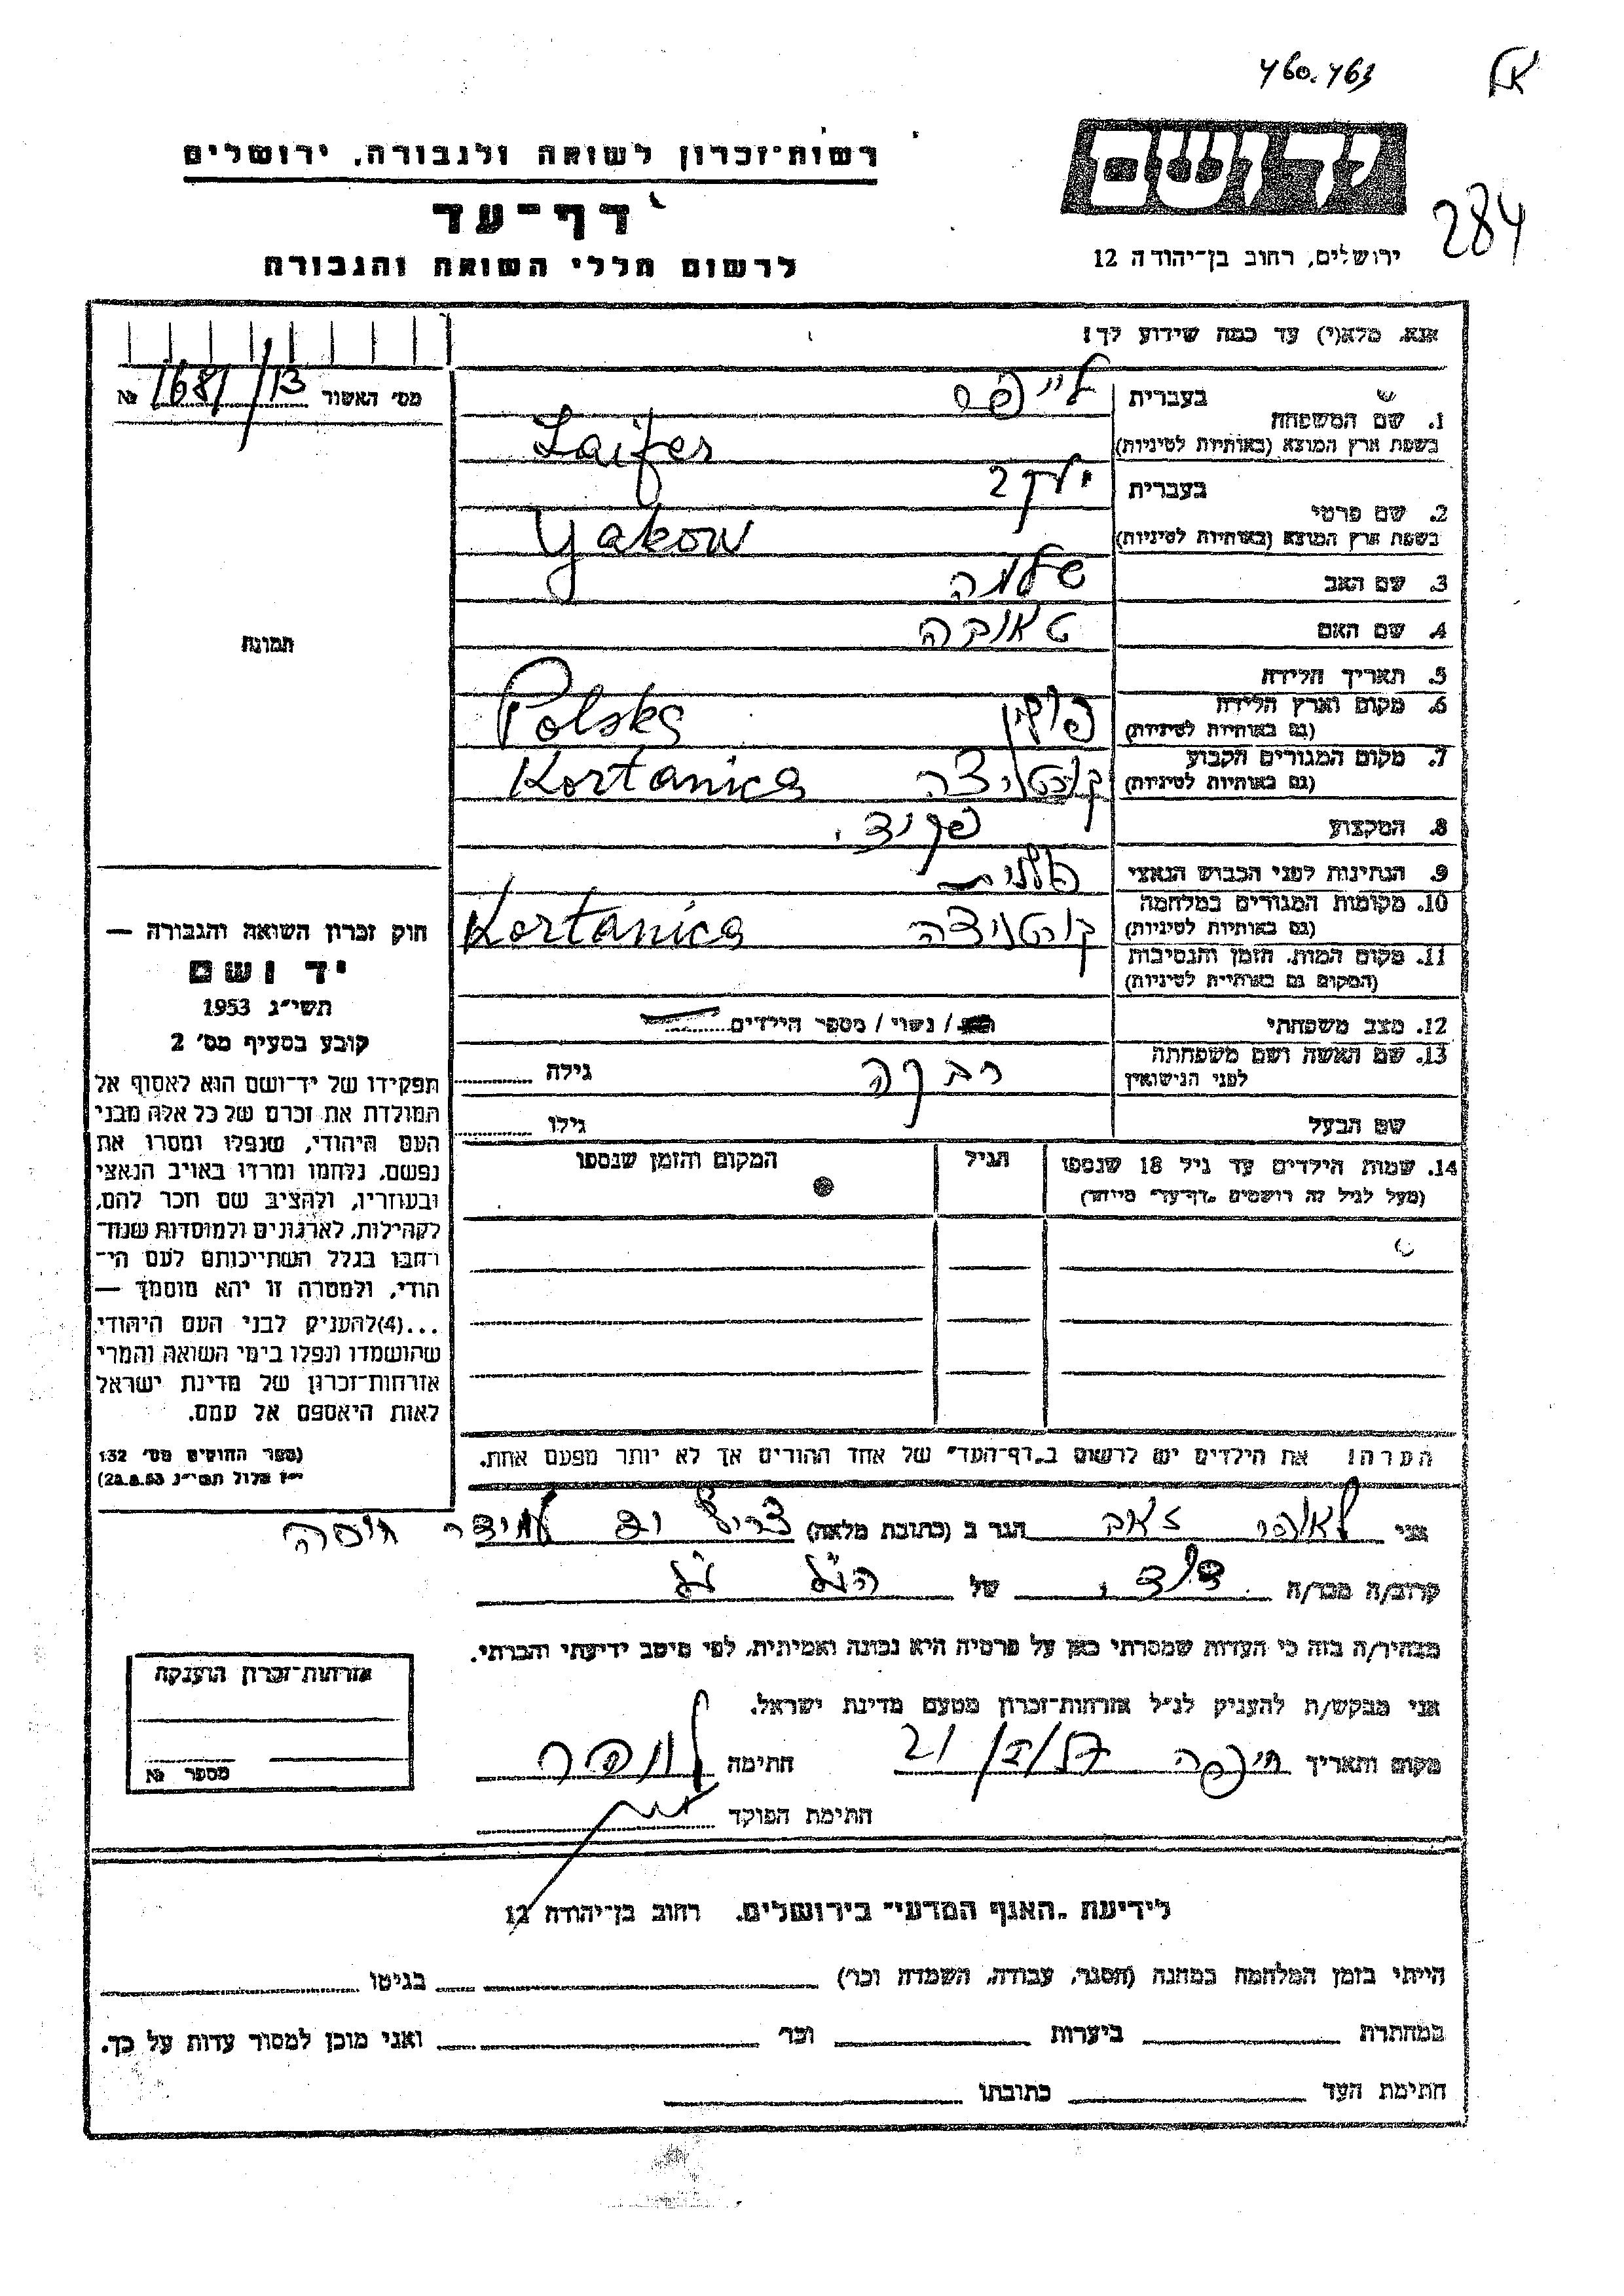 460.463
284
יד ושם
רשות־זכרון לשואה ולגבורה, ירושלים
דף־עד
לרשום חללי השואה והגבורה
ירושלים, רחוב בן־יהודה 12
אנא, מלא(י) עד כמה שידוע לך!
מס׳ האשור 1681/13 №
תמונה
1. שם המשפחה
בעברית לייפר
בשפת ארץ המוצא (באותיות לטיניות) Laifer
2. שם פרטי
בעברית יעקב
בשפת ארץ המוצא (באותיות לטיניות) Yakow
3. שם האב שלמה
4. שם האם טאובה
5. תאריך הלידה
6. מקום וארץ הלידה
(גם באותיות לטיניות) פולין Polska
7. מקום המגורים הקבוע
(גם באותיות לטיניות) קורטניצה Kortanica
8. המקצוע פקיד
9. הנתינות לפני הכבוש הנאצי פולנית
10. מקומות המגורים במלחמה
(גם באותיות לטיניות) קורטניצה Kortanica
11. מקום המות, הזמן והנסיבות
(המקום גם באותיות לטיניות)
12. מצב משפחתי / נשוי / מספר הילדים
13. שם האשה ושם משפחתה
לפני הנישואין רבקה גילה
שם הבעל גילו
14. שמות הילדים עד גיל 18 שנספו
(מעל לגיל זה רושמים „דף־עד״ מיוחד)
הגיל
המקום והזמן שנספו
הערה! את הילדים יש לרשום ב„דף־העד״ של אחד ההורים אך לא יותר מפעם אחת.
חוק זכרון השואה והגבורה —
יד ושם
תשי״ג 1953
קובע בסעיף מס׳ 2
תפקידו של יד־ושם הוא לאסוף אל
המולדת את זכרם של כל אלה מבני
העם היהודי, שנפלו ומסרו את
נפשם, נלחמו ומרדו באויב הנאצי
ובעוזריו, ולהציב שם וזכר להם,
לקהילות, לארגונים ולמוסדות שנח־
רבו בגלל השתייכותם לעם הי־
הודי, ולמטרה זו יהא מוסמך —
...(4) להעניק לבני העם היהודי
שהושמדו ונפלו בימי השואה והמרי
אזרחות־זכרון של מדינת ישראל
לאות היאספם אל עמם.
(ספר החוקים מס׳ 132
י״ז אלול תשי״ג 28.8.53)
אני זאב הגר ב (כתובת מלאה) חיפה
קרוב/ה מכר/ה דוד של הנ״ל
מצהיר/ה בזה כי העדות שמסרתי כאן על פרטיה היא נכונה ואמיתית, לפי מיטב ידיעתי והכרתי.
אני מבקש/ת להעניק לנ״ל אזרחות־זכרון מטעם מדינת ישראל.
מקום ותאריך חיפה חתימה
חתימת הפוקד
אזרחות־זכרון הוענקה
מספר №
לידיעת „האגף המדעי״ בירושלים, רחוב בן־יהודה 12
הייתי בזמן המלחמה במחנה (הסגר, עבודה, השמדה וכר׳) בגיטו
במחתרת ביערות וכר׳ ואני מוכן למסור עדות על כך.
חתימת העד כתובתו